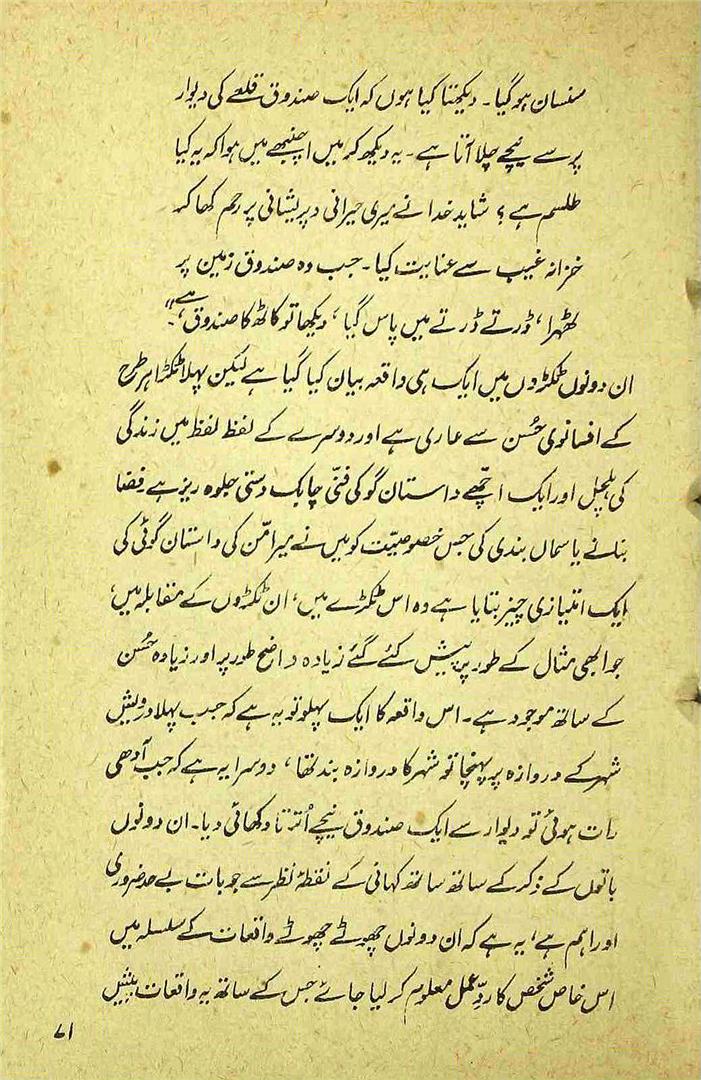 سنسان ہو گیا۔ دیکھتا کیا ہوں کہ ایک صندوق قلعے کی دیوار
پر سے نیچے چلا آتا ہے۔ یہ دیکھ کر میں اچنبھے میں ہوا کہ یہ کیا
طلسم ہے؟ شاید خدا نے میری حیرانی و پریشانی پر رحم کھا کر
خزانہ غیب سے عنایت کیا۔ جب وہ صندوق زمین پر
ٹھہرا، ڈرتے ڈرتے میں پاس گیا، دیکھا تو کاٹھ کا صندوق ہے"۔
ان دونوں ٹکڑوں میں ایک ہی واقعہ بیان کیا گیا ہے لیکن پہلا ٹکڑا ہر طرح
کے افسانوی حُسن سے عاری ہے اور دوسرے کے لفظ لفظ میں زندگی
کی ہلچل اور ایک اچّھے داستان گو کی فنّی چابک دستی جلوہ ریز ہے۔ فضا
بنانے یا سماں بندی کی جس خصوصیّت کو میں نے میر امّن کی داستان گوئی کی
ایک امتیازی چیز بتایا ہے وہ اس ٹکڑے میں، ان ٹکڑوں کے مقابلہ میں،
جو ابھی مثال کے طور پر پیش کئے گئے زیادہ واضح طور پر اور زیادہ حُسن
کے ساتھ موجود ہے۔ اس واقعہ کا ایک پہلو تو یہ ہے کہ جب پہلا درویش
شہر کے دروازہ پر پہنچا تو شہر کا دروازہ بند تھا، دوسرا یہ ہے کہ جب آدھی
رات ہوئی تو دیوار سے ایک صندوق نیچے اُترتا دکھائی دیا۔ ان دونوں
باتوں کے ذکر کے ساتھ ساتھ کہانی کے نقطۂ نظر سے جو بات بے حد ضروری
اور اہم ہے، یہ ہے کہ ان دونوں چھوٹے چھوٹے واقعات کے سلسلہ میں
اس خاص شخص کا ردِّ عمل معلوم کر لیا جائے جس کے ساتھ یہ واقعات پیش
۷۱